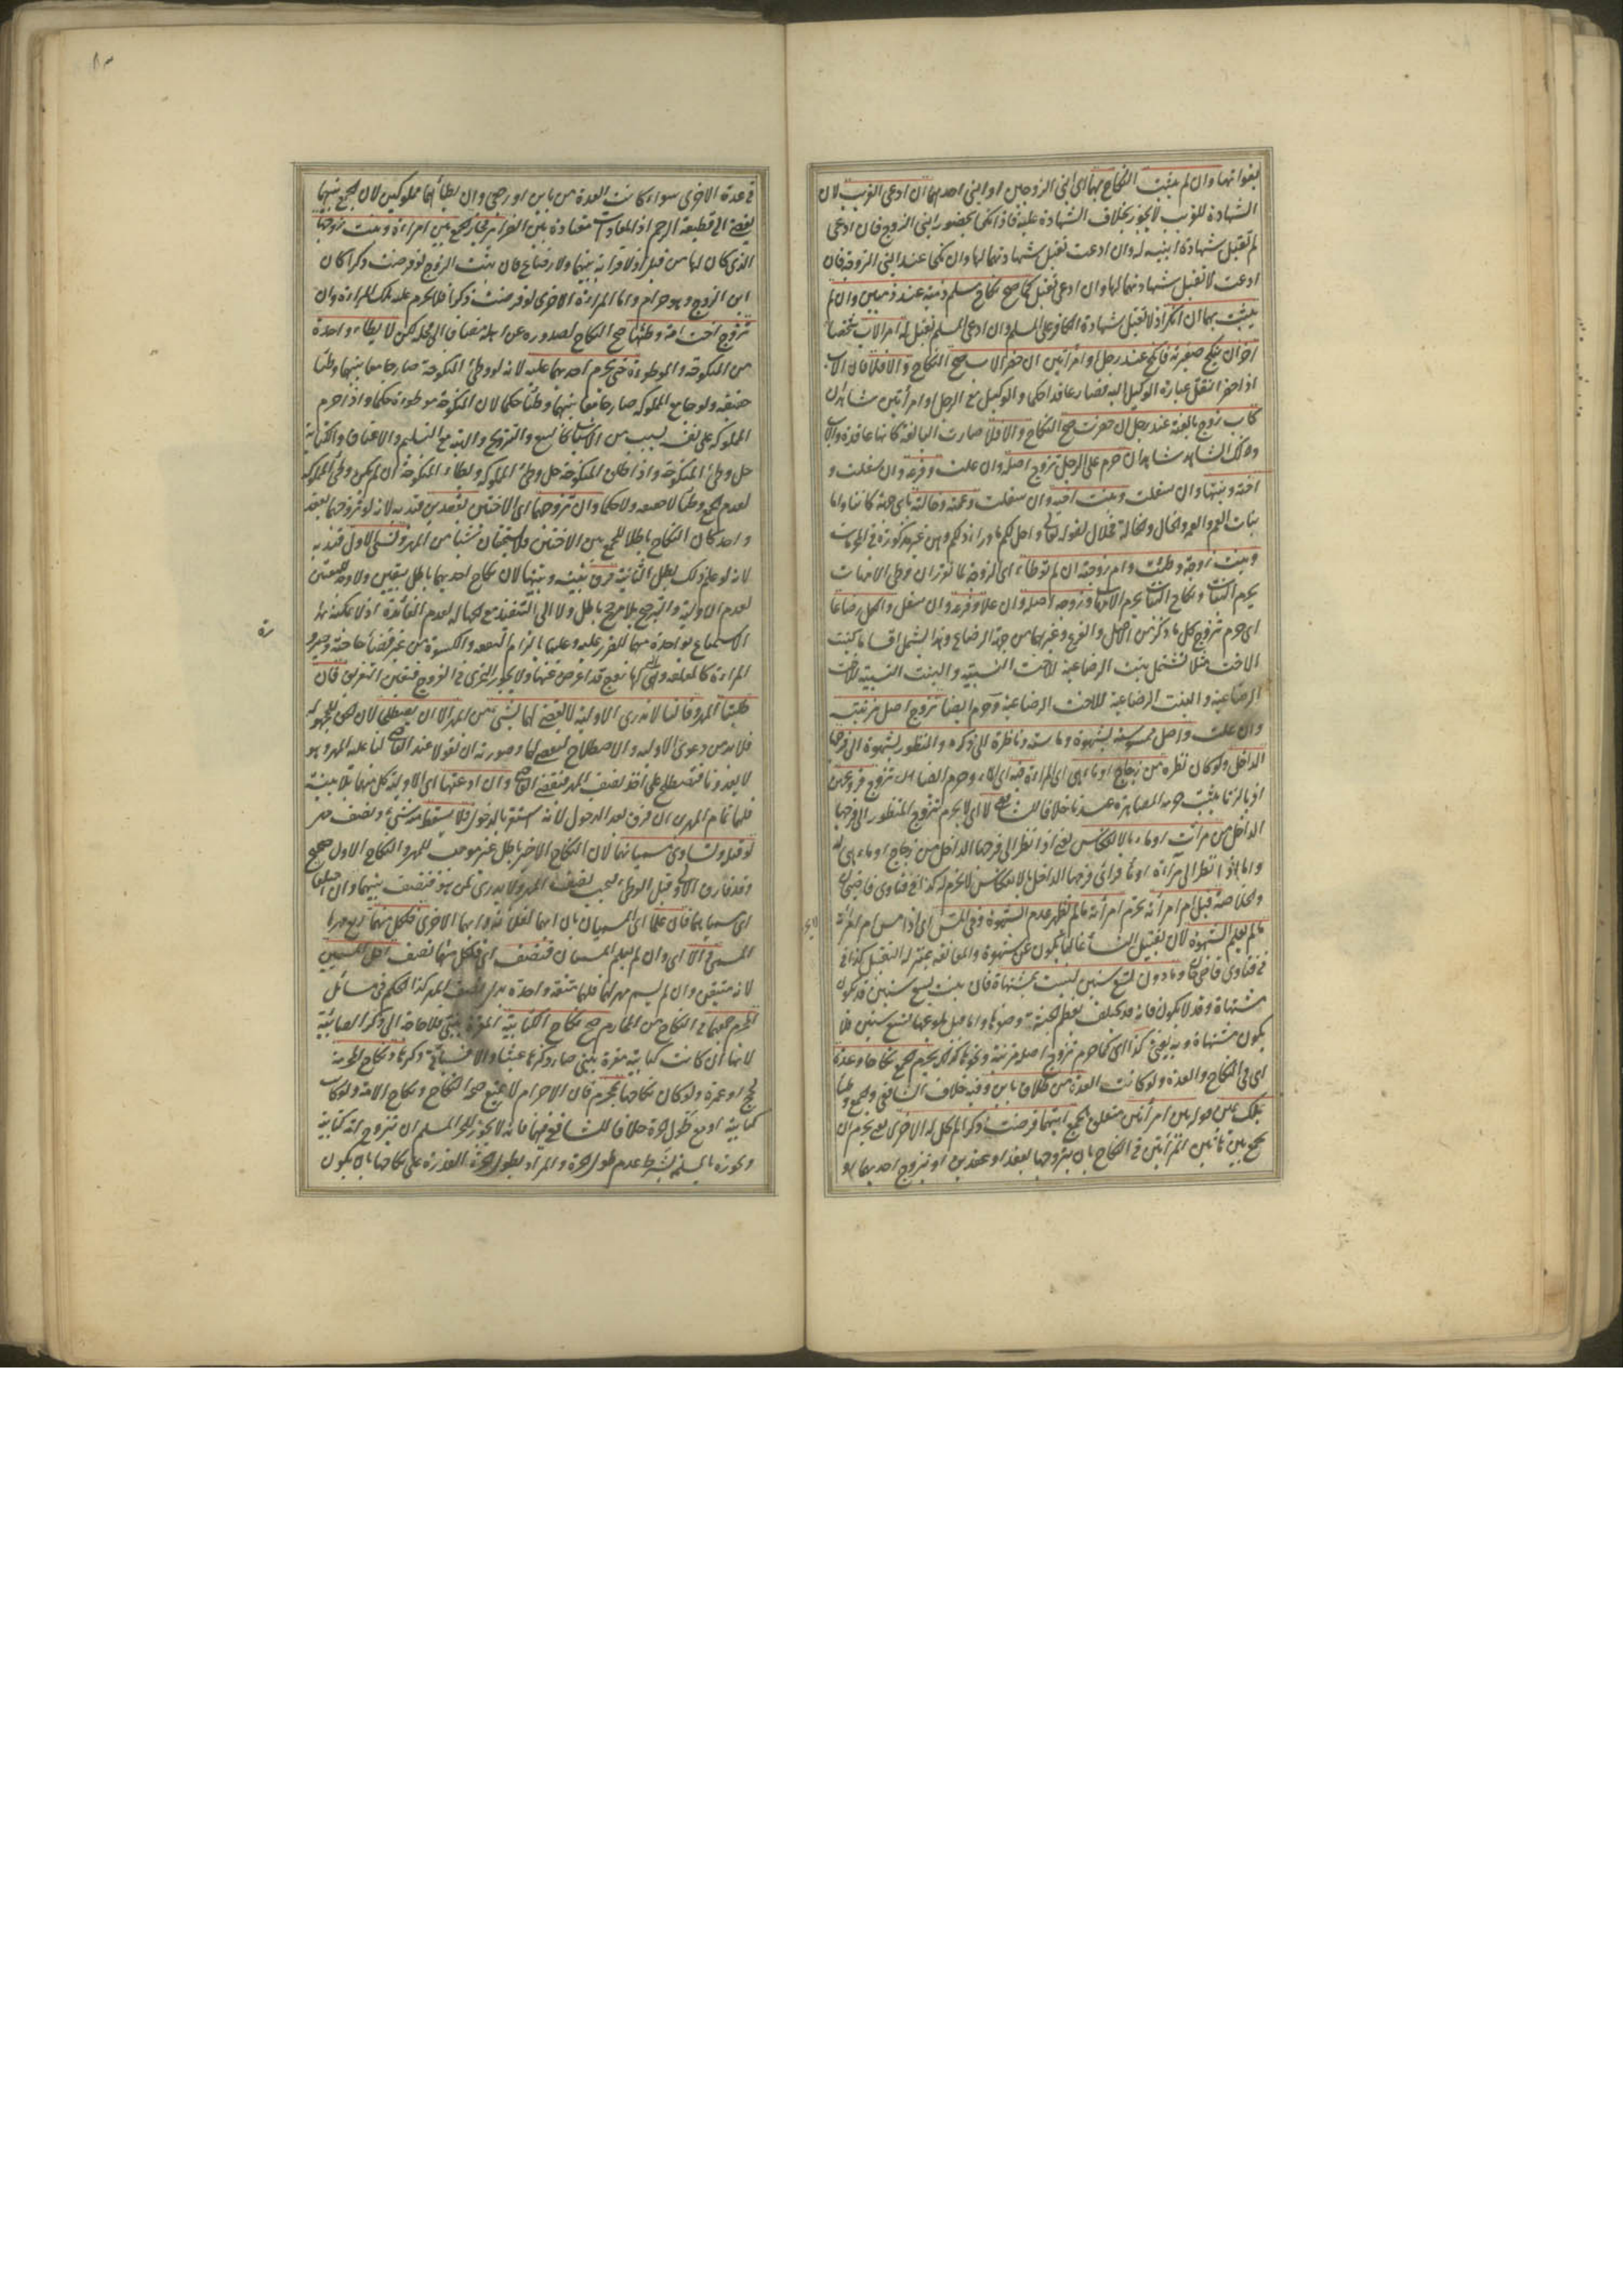 بغوانها وان لم يثبت النكاح بهما اى بابنى الزوجين او ابنى احدهما ان ادعى القريب لان
الشهادة للقريب لا يجوز بخلاف الشهادة عليه فاذا نكحا بحضور ابنى الزوج فان ادعى
لم تقبل شهادة ابنيه له وان ادعت تقبل شهادتهما لها وان نكحا عند ابنى الزوجة فان
ادعت لا تقبل شهادتهما لها وان ادعى تقبل كما صح نكاح مسلم ذمية عند ذميين وان لم
يثبت بهما ان انكر اذ لا تقبل شهادة الكافر على المسلم وان ادعى المسلم تقبل له امر الاب شخصا
آخر ان ينكح صغيرته فانكح عند رجل وامرأتين ان حضر الاب صح النكاح والا فلا فان الاب
اذا حضر انتقل عبارة الوكيل اليه فصار عاقدا حكما والوكيل مع الرجل او امرأتين شاهدان
كاب زوج بالغته عند رجل ان حضرت صح النكاح والا فلا صارت البالغة كانها عاقدة والاب
وذلك الشاهد شاهدان حرم على الرجل تزوج اصله وان علت وفرعه وان سفلت و
اخته وبنتها وان سفلت وبنت اخيه وان سفلت وعمته وخالته باى جهة كانتا واما
بنات العم والعمة والخال والخالة فحلال لقوله تعالى واحل لكم ما وراء ذلكم وهن غير مذكورة فى المحرمات
وبنت زوجة وطئت وام زوجته ان لم توطأ اى الزوجة لما تقرر ان وطى الامهات
يحرم البنات ونكاح البنات يحرم الامهات وزوجة اصله وان علا وفرعه وان سفل والكل رضاعا
اى حرم تزوج كل ما ذكر من الاصل والفرع وغيرهما من جهة الرضاع وهذا يشمل اقساما كبنت
الاخت مثلا تشتمل بنت الرضاعية للاخت النسبية والبنت النسبية للاخت
الرضاعية والبنت الرضاعية للاخت الرضاعية وحرم ايضا تزوج اصل مزنيته
وان علت واصل ممسوسته بشهوة وماسته وناظرة الى ذكره والمنظور بشهوة الى فرجها
الداخل ولو كان نظره من زجاج او ماء هى اى المرأة فيه اى الماء وحرم ايضا تزوج فروعهن
اذ بالزنا يثبت حرمة المصاهرة عندنا خلافا للشافعى لا اى لا يحرم تزوج المنظور الى فرجها
الداخل من مرآت او ماء بالانعكاس يعنى اذا نظر الى فرجها الداخل من زجاج او ماء هى فيه
واما اذا نظر الى مرآة او ماء فرأى فرجها الداخل بالانعكاس لا يحرم له كذا فى فتاوى قاضيخان
والخلاصة قبل ام امرأته تحرم امرأته ما لم تظهر عدم الشهوة وفى المس اى اذا مس ام امرأته
ما لم يعلم الشهوة لان تقبيل النساء غالبا يكون عن شهوة والمعانقة بمنزلة التقبيل كذا فى
فى فتاوى قاضيخان وما دون تسع سنين ليست بمشتهاة فان بنت تسع سنين قد يكون
مشتهاة وقد لا يكون فانه قد يختلف بعظم الجثة وصغرها واما قبل بلوغها تسع سنين فلا
يكون مشتهاة وبه يفتى كذا اى كما حرم تزوج اصل مزنيته ونحوها كذلك يحرم الجمع نكاحا وعدة
اى فى النكاح والعدة ولو كانت العدة من طلاق باين وفيه خلاف الشافعى والجمع وطئا
بملك يمين حوله بين امرأتين متعلق بجمع ايتهما فرضت ذكرا لم تحل له الاخرى يعنى يحرم ان
يجمع بين هاتين المرأتين فى النكاح بان يتزوجهما بعقد او عقدين او تزوج احديهما او
فى عدة الاخرى سواء كانت العدة من باين او رجعى وان يطأهما مملوكتين لان الجمع بينهما
يفضى الى قطيعة الرحم اذ المعادات معتادة بين الضرائر فجاز الجمع بين امرأة وبنت زوجها
الذى كان لها من قبل اذ لا قرابة بينهما ولا رضاع فان بنت الزوج لو فرضت ذكرا كان
ابن الزوج وهو حرام واما المرأة الاخرى لو فرضت ذكرا فلا يحرم عليه تلك المرأة وان
تزوج اخت امة وطئها صح النكاح لصدوره عن اهله مضاف الى محله لكن لا يطأ واحدة
من المنكوحة والموطوءة حتى يحرم احديهما عليه لانه لو وطئ المنكوحة صار جامعا بينهما وطئا
حقيقة ولو جامع المملوكة صار جامعا بينهما وطئا حكما لان المنكوحة موطوءة حكما واذا حرم
المملوكة على نفسه بسبب من الاسباب كالبيع والتزويج والهبة مع التسليم والاعتاق والكتابة
حل وطئ المنكوحة واذا طلق المنكوحة حل وطئ المملوكة ويطأ المنكوحة ان لم يكن وطئ المملوكة
لعدم الجمع وطئا لا حقيقة ولا حكما وان تزوجهما اى الاختين بعقدين قيد به لانه لو تزوجهما بعقد
واحد كان النكاح باطلا للجمع بين الاختين فلا يستحقان شيئا من المهر ونسى الاول قيد به
لانه لو علم ذلك بطل الثانية فرق بينه وبينهما لان نكاح احديهما باطل بيقين ولا وجه للتعيين
لعدم الاولية والترجيح بلا مرجح باطل ولا الى التنفيذ مع الجهالة لعدم الفائدة اذ لا يمكنه
الاستمتاع بواحدة منهما للضرر عليه وعليهما بالزام النفقة والكسوة من غير قضاء حاجته وصيرورة
المرأة كالمعلقة وهى التى لها زوج قد اعرض عنها ولا يجوز التحرى فى الفروج فتعين التفريق فان
طلبتا المهر وقالتا لا ندرى الاولية لا يقضى لهما بشئ من المهر الا ان يصطلحا لان الحق للمجهولة
فلا بد من دعوى الاولية والاصطلاح ليقضى لهما وصورته ان تقولا عند القاضى لنا عليه المهر وهو
لا يعدونا فنصطلح على اخذ نصف المهر فيقضى القاضى وان ادعتها اى الاولية كل منهما بلا بينة
فلهما تمام المهرين ان فرق بعد الدخول لانه استقر بالدخول فلا يسقط منه شئ ونصف مهر
لو قبله وتساوى مسمياتهما لان النكاح الاخير باطل غير موجب للمهر والنكاح الاول صحيح
وقد فارق الاولى قبل الوطئ فيجب نصف المهر ولا يدرى لمن هو فينصف بينهما وان اختلفا
اى مسمياتهما فان علما اى المسميان بان ايهما لفلانة وايهما الاخرى فلكل منهما ربع مهرها
المسمى والا اى وان لم يعلم المسميان فنصف اى فلكل منهما نصف اقل المسميين
لانه متيقن وان لم يسم مهر لهما فلهما متعة واحدة بدل نصف المهر كذا الحكم فى مسائل
المحرم جمعهما فى النكاح من المحارم صح نكاح الكتابية المقرة بنبى فلا حاجة الى ذكر الصابئية
لانها ان كانت كتابية مقرة بنبى صار ذكرها عبثا والا فسيأتى ذكرها ونكاح المحرمة
بحج او عمرة ولو كان نكاحها بمحرم فان الاحرام لا يمنع صحة النكاح ونكاح الامة ولو كانت
كتابية او مع طول حرة خلافا للشافعى فيهما فانه لا يجوز للحر المسلم ان يتزوج امة كتابية
ويجوزه بالمسلمة بشرط عدم طول الحرة والمراد بطول الحرة القدرة على نكاحها بان يكون